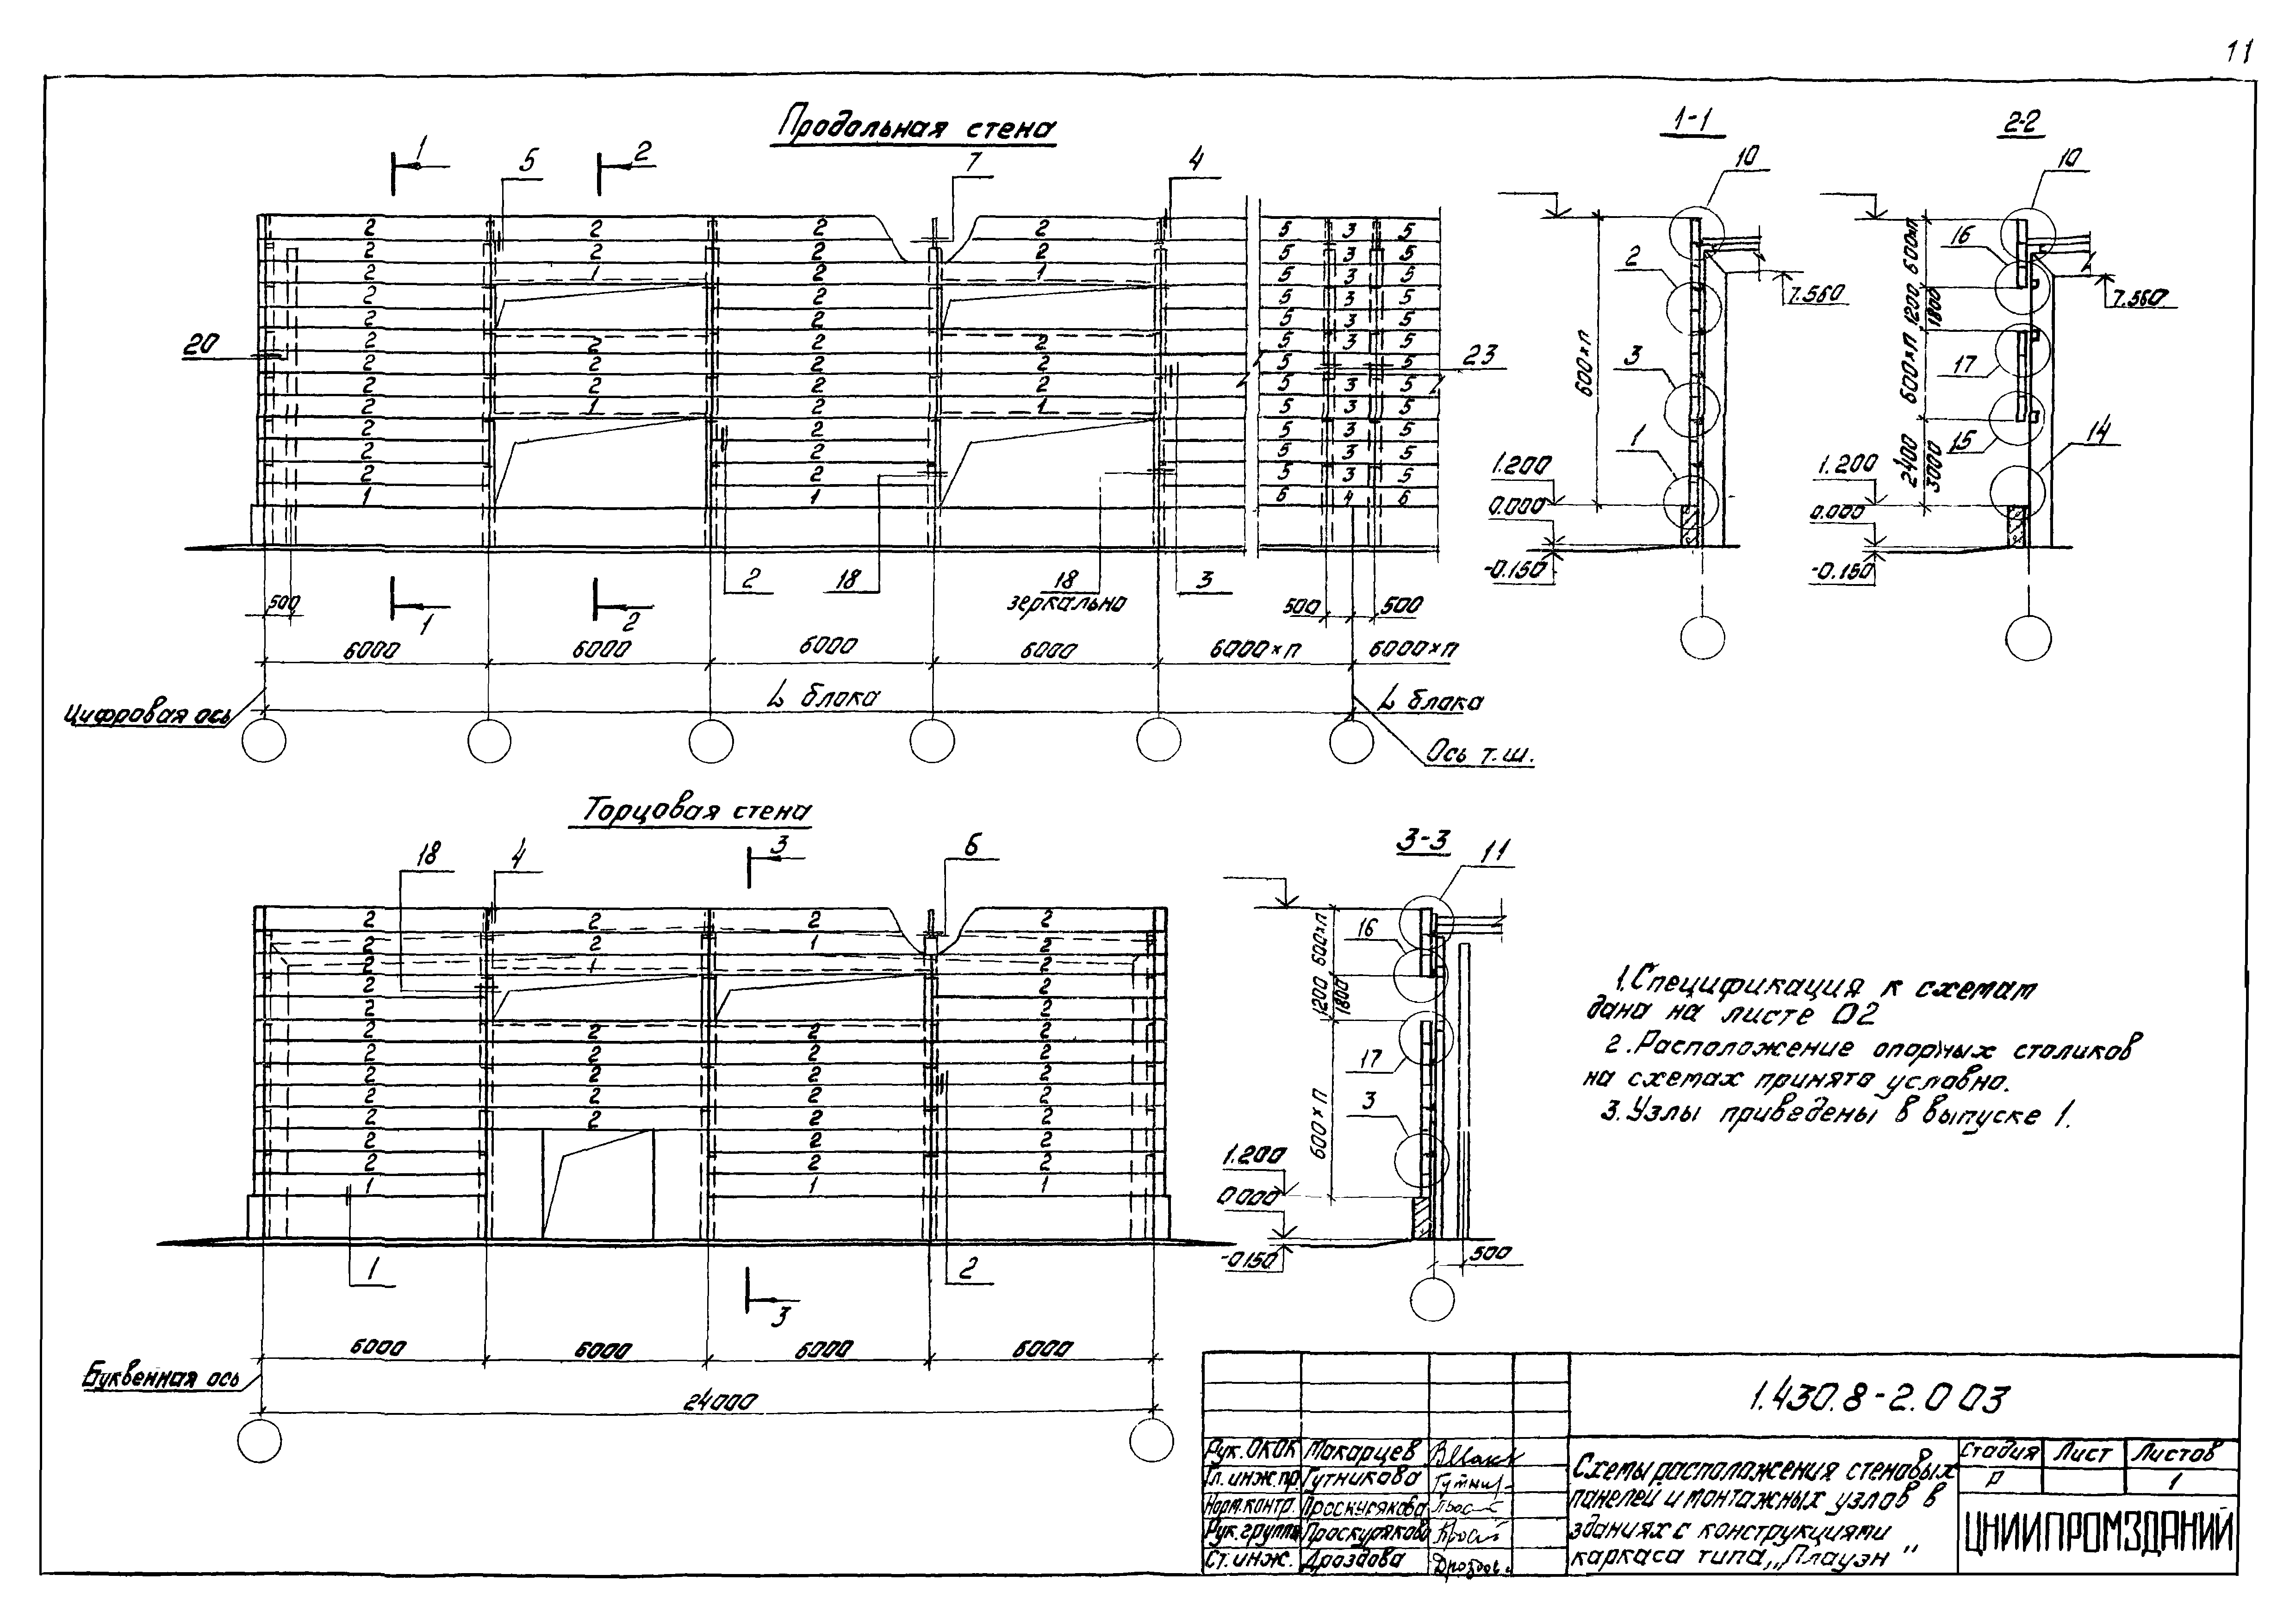 11
Продольная стена
1-1
2-2
1 5 2 7 4
10
10
2 2 2 2 5 3 5
2 2 2 2 5 3 5
2 1 2 1 5 3 5
2 2 5 3 5
2 2 5 3 5
2 2 2 2 5 3 5
2 2 2 2 5 3 5
2 2 2 2 5 3 5
2 1 2 1 5 3 5
2 2 5 3 5
2 2 5 3 5
2 2 5 3 5
1 1 6 4 6
20
23
2
3
1
600×п
7.560
1.200
0.000
-0.150
16
17
15
14
600×п
1200
1800
600×п
2400
3000
7.560
1.200
0.000
-0.150
2 18 18 3
зеркально
1 2
500 500 500
6000 6000 6000 6000 6000×п 6000×п
L блока L блока
Цифровая ось
Ось т.ш.
Торцовая стена
3-3
18 4 3 6
11
2 2 2 2
2 2 1 2
2 1 2
2 2
2 2
2 2 2 2
2 2 2 2
2 2 2 2
2 2 2 2
2 2 2 2
2 2 2
2 2 2
1 1 1
1 3 2
16
17
3
600×п
1200
1800
600×п
1.200
0.000
-0.150
500
6000 6000 6000 6000
24000
Буквенная ось
1. Спецификация к схемам
дана на листе 02
2. Расположение опорных столиков
на схемах принято условно.
3. Узлы приведены в выпуске 1.
1.430.8-2.0 03
Рук. ОКОК Макарцев
Гл. инж. пр. Гутникова
Норм. контр. Проскурякова
Рук. группы Проскурякова
Ст. инж. Дроздова
Схемы расположения стеновых
панелей и монтажных узлов в
зданиях с конструкциями
каркаса типа „Плауэн"
Стадия Лист Листов
Р 1
ЦНИИПРОМЗДАНИЙ